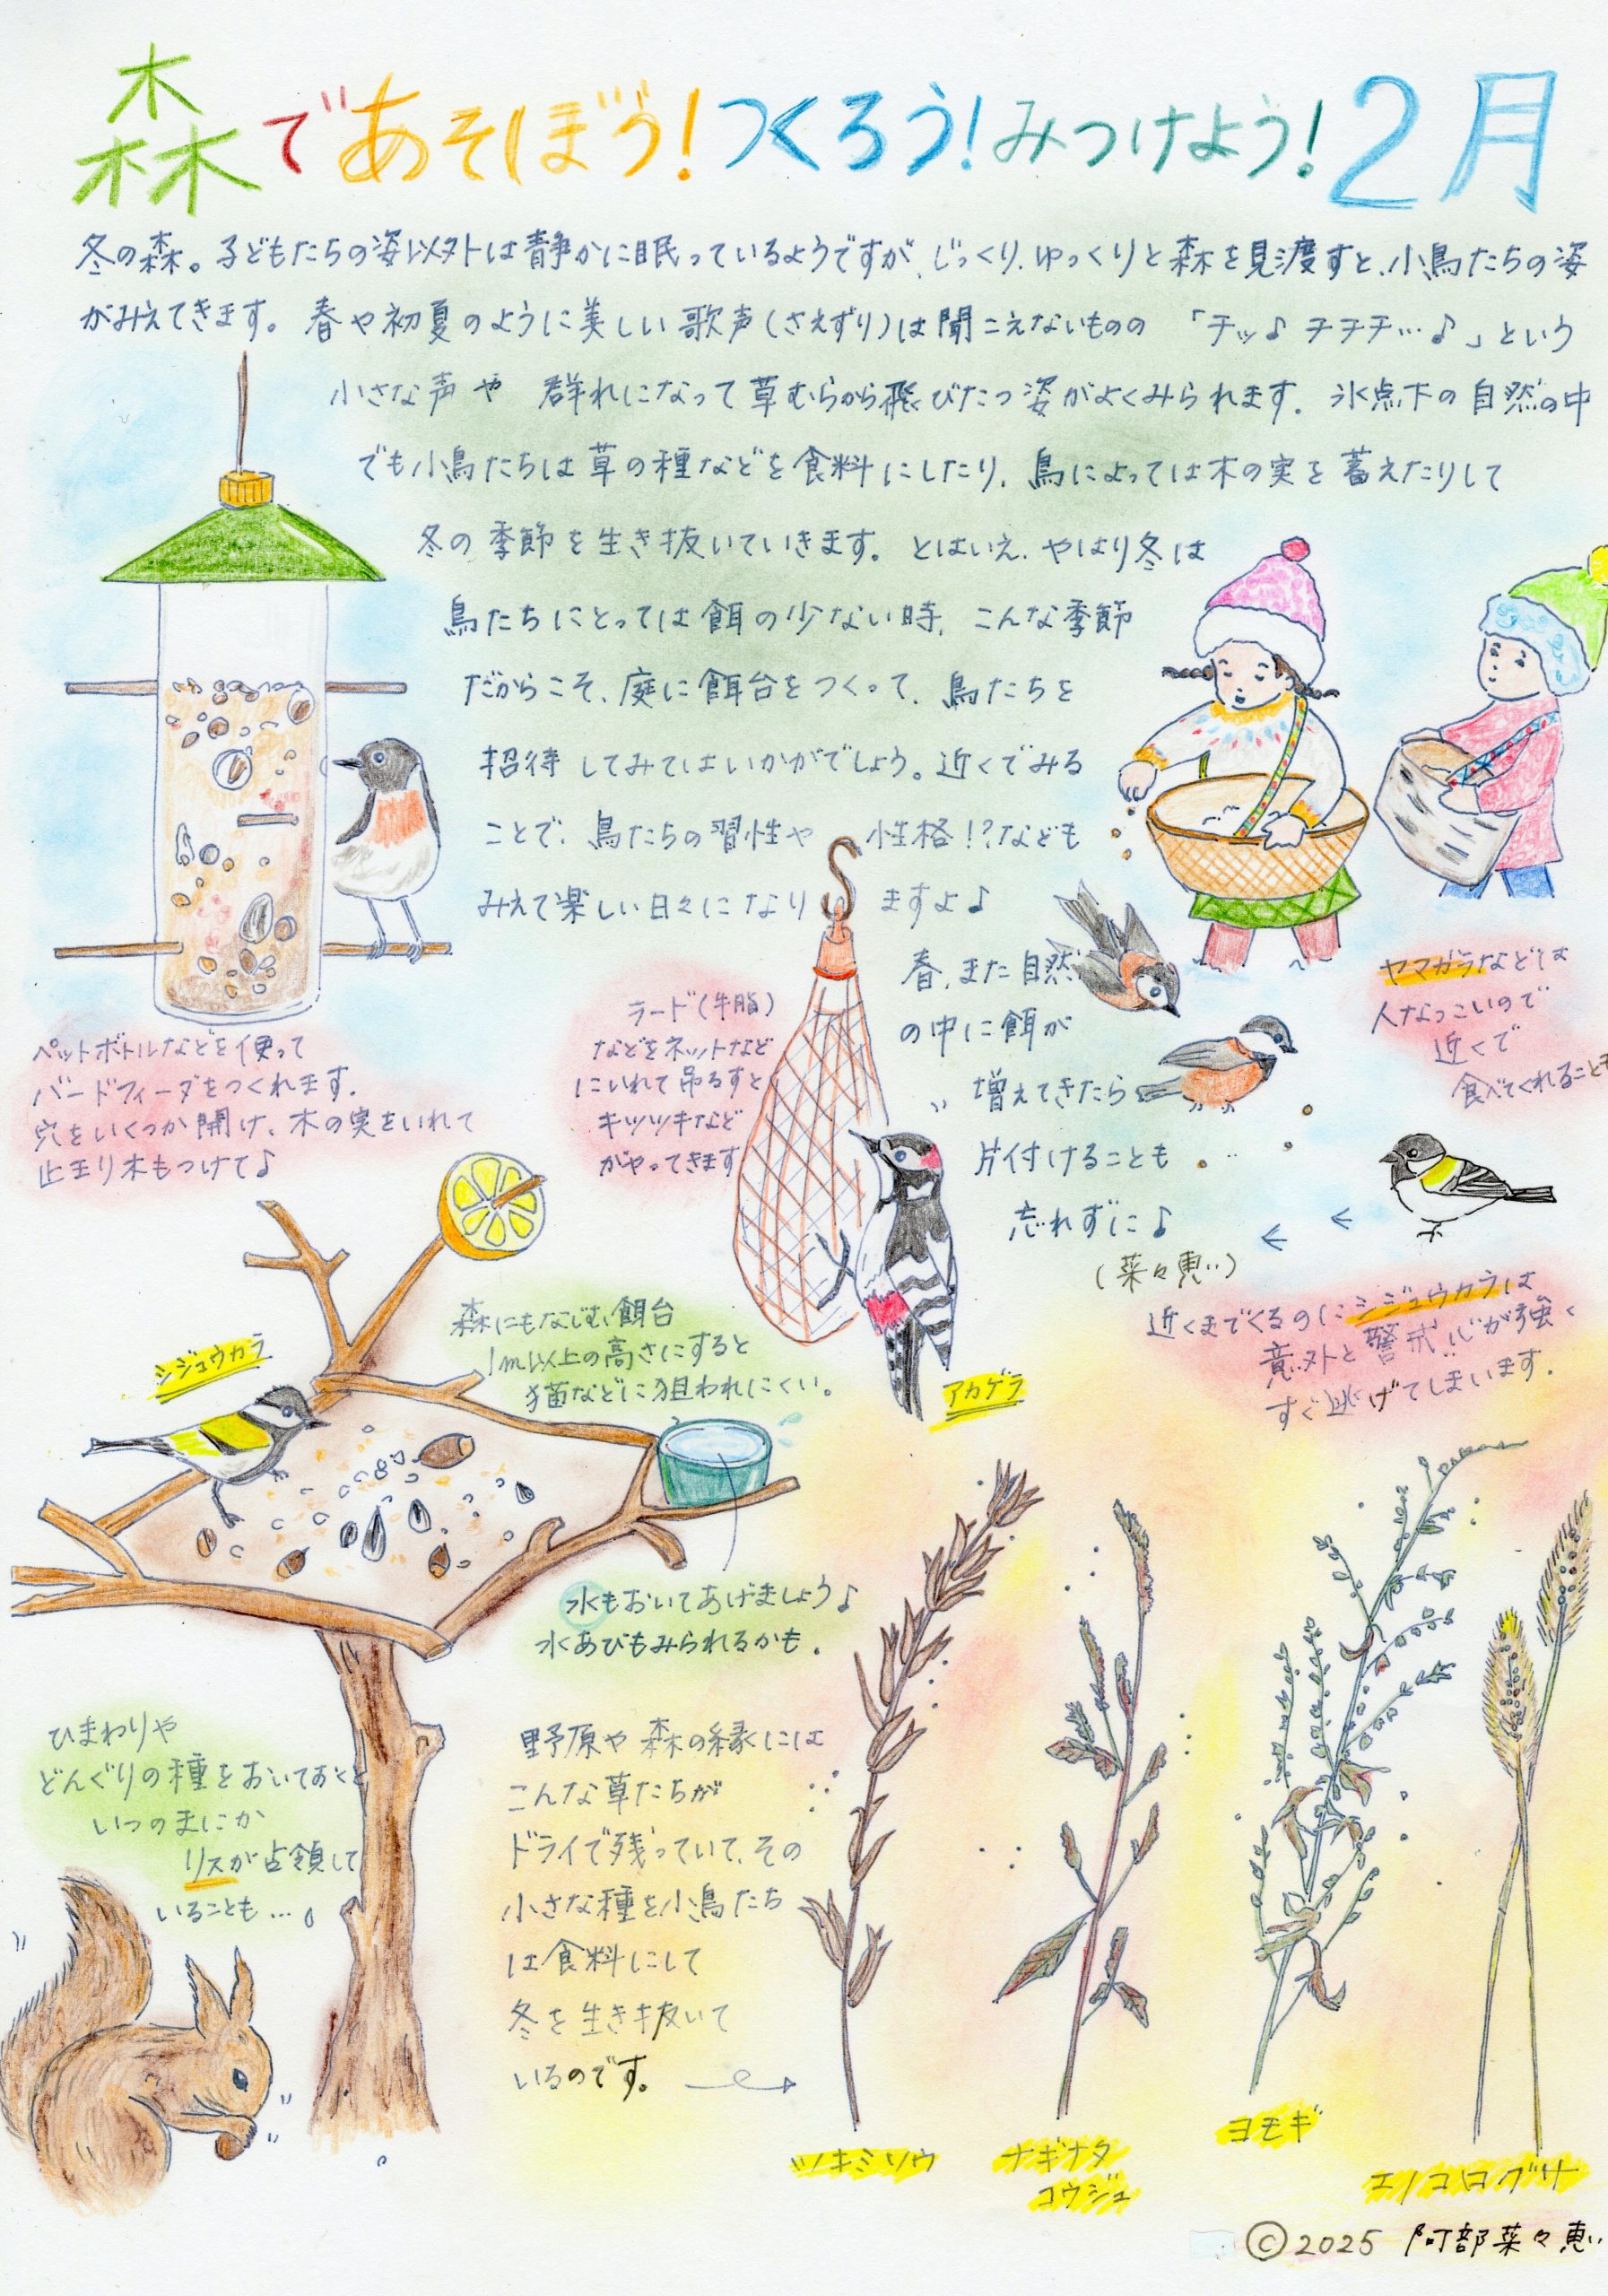 森であそぼう!つくろう!みつけよう!2月
冬の森。子どもたちの姿以外は静かに眠っているようですが、じっくり、ゆっくりと森を見渡すと、小鳥たちの姿
がみえてきます。春や初夏のように美しい歌声(さえずり)は聞こえないものの 「チッ♪チチチ…♪」という
小さな声や 群れになって草むらから飛びたつ姿がよくみられます。氷点下の自然の中
でも小鳥たちは草の種などを食料にしたり、鳥によっては木の実を蓄えたりして
冬の季節を生き抜いていきます。とはいえ、やはり冬は
鳥たちにとっては餌の少ない時、こんな季節
だからこそ、庭に餌台をつくって、鳥たちを
招待してみてはいかがでしょう。近くでみる
ことで、鳥たちの習性や 性格!?なども
みえて楽しい日々になり ますよ♪
春、また自然
の中に餌が
増えてきたら
片付けることも
忘れずに♪
(菜々恵)
ペットボトルなどを使って
バードフィーダをつくれます。
穴をいくつか開け、木の実をいれて
止まり木もつけて♪
ラード(牛脂)
などをネットなど
にいれて吊るすと
キツツキなど
がやってきます
ヤマガラなどは
人なつこいので
近くで
食べてくれることも
近くまでくるのにシジュウカラは
意外と警戒心が強く
すぐ逃げてしまいます。
アカゲラ
シジュウカラ
森にもなじむ餌台
1m以上の高さにすると
猫などに狙われにくい。
水もおいてあげましょう♪
水あびもみられるかも。
ひまわりや
どんぐりの種をおいておくと
いつのまにか
リスが占領して
いることも…。
野原や森の縁には
こんな草たちが
ドライで残っていて、その
小さな種を小鳥たち
は食料にして
冬を生き抜いて
いるのです。
ツキミソウ
ナギナタ
コウジュ
ヨモギ
エノコログサ
©2025 阿部菜々恵